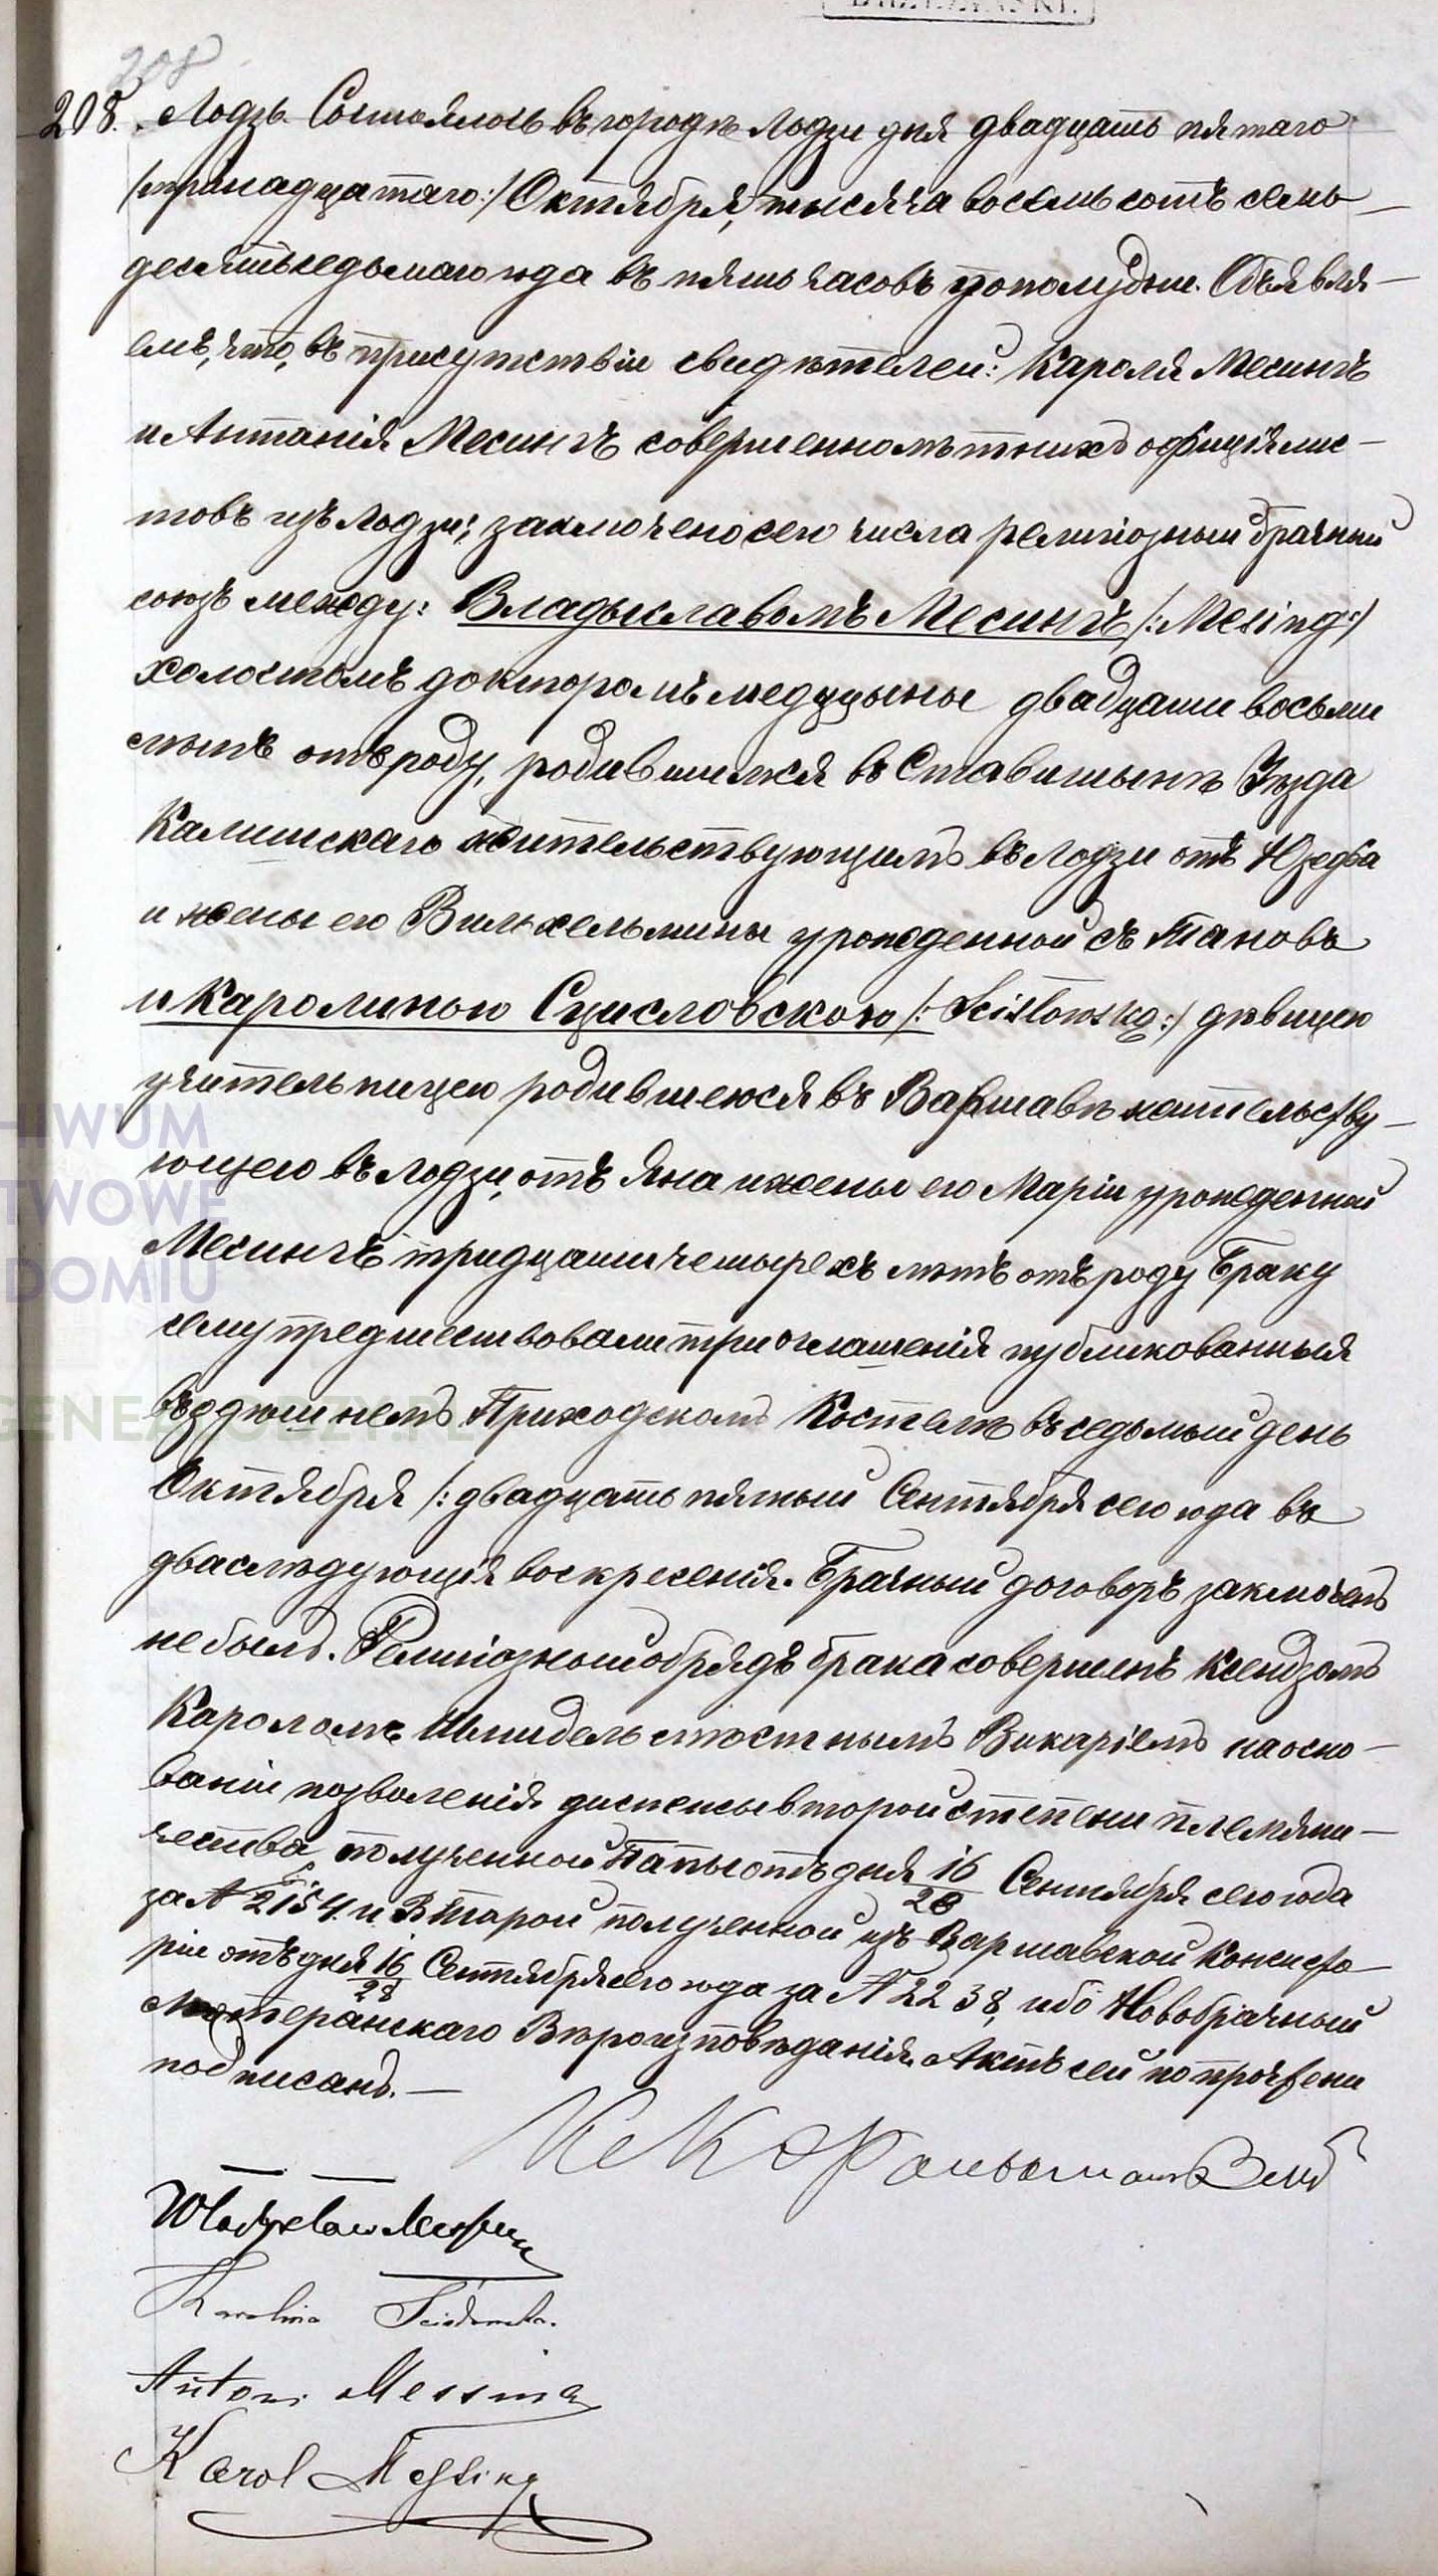 BRZEZIŃSKI.
208
208. Лодзь. Состоялось въ городѣ Лодзи дня двадцать пятаго
/:тринадцатаго:/ Октября, тысяча восемь сотъ семь-
десятъ седьмаго года въ пять часовъ пополудни. Объявля-
емъ, что, въ присутствіи свидѣтелей: Кароля Месингъ
и Антанія Месингъ совершеннолѣтнихъ офиціялис-
товъ изъ Лодзи; заключено сего числа религіозный брачный
союзъ между: Владыславомъ Месингъ /:Mesing:/
холостомъ докторомъ медицыны двадцати восьми
лѣтъ отъ роду, родившимся въ Ставишынѣ Уѣзда
Калишскаго жительствующимъ въ Лодзи отъ Юзефа
и жены его Вильхельмины урожденной съ Тановъ
и Каролиною Сцисловскою /:Scisłowską:/ дѣвицею
учительницею родившеюся въ Варшавѣ жительству-
ющею въ Лодзи, отъ Яна и жены его Маріи урожденной
Месингъ тридцати четырехъ лѣтъ отъ роду Браку
сему предшествовали три оглашенія публикованныя
въ здѣшнемъ Приходскомъ Костелѣ въ седьмый день
Октября /:двадцать пятый Сентября сего года въ
два слѣдующія воскресенія. Брачный договоръ заключенъ
не былъ. Религіозный обрядъ брака совершенъ Ксендзомъ
Каролемъ Шмидель мѣстнымъ Викаріемъ на осно-
ваніи позволенія диспенсы второй степени племяни-
чества, полученной Папы отъ дня 16/28 Сентября сего года
за № 2154. и Вторай полученной изъ Варшавской Консисто-
ріи отъ дня 16/28 Сентября сего года за № 2238, ибо Новобрачный
Лютеранскаго Вѣроизповѣданія. Актъ сей по прочтени
подписанъ. —
Władysław Messing
Karolina Scisłowska.
Antoni Messing
Karol Messing
HIWUM
TWOWE
DOMIU